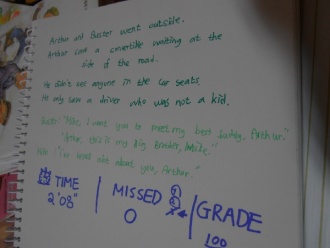 Arthur and Buster went outside.
Arthur saw a convertible waiting at the
side of the road.
He didn't see anyone in the car seats.
He only saw a driver who was not a kid.
Buster: "Mike, I want you to meet my best buddy, Arthur."
"Arthur, this is my Big Brother, Mike."
Mike: "I've heard lots about you, Arthur."
TIME
2'08"
MISSED
0
GRADE
100